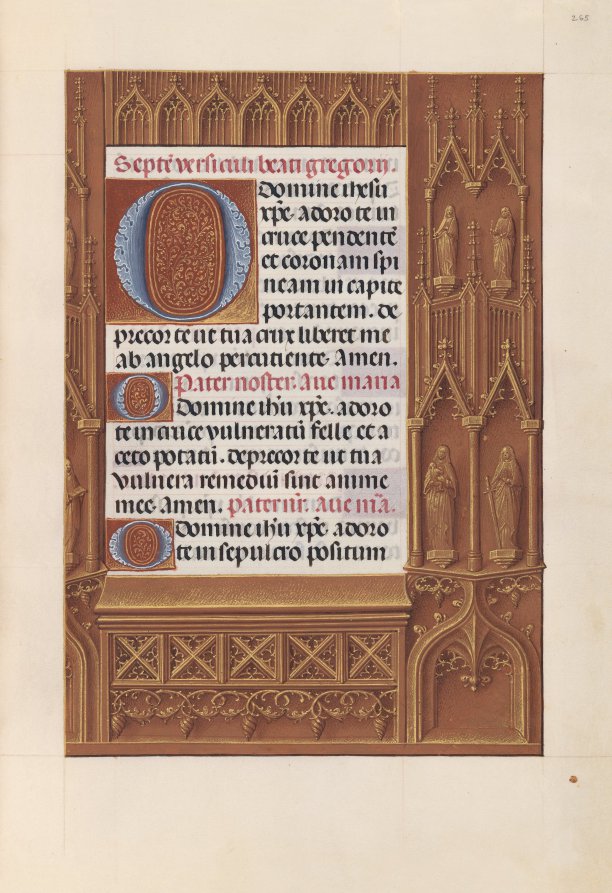 265
Septē versiculi beati gregorii.
Domine ihesu
xp̄e. adoro te in
cruce pendentē
et coronam spi
neam in capite
portantem. de
precor te ut tua crux liberet me
ab angelo percutiente. Amen.
Pater noster. Aue maria
Domine ih̄u xp̄e. adoro
te in cruce vulneratū felle et a
ceto potatū. deprecor te ut tua
vulnera remediū sint anime
mee. Amen. Pater nr̄. Aue m̄a.
Domine ih̄u xp̄e. adoro
te in sepulcro positum